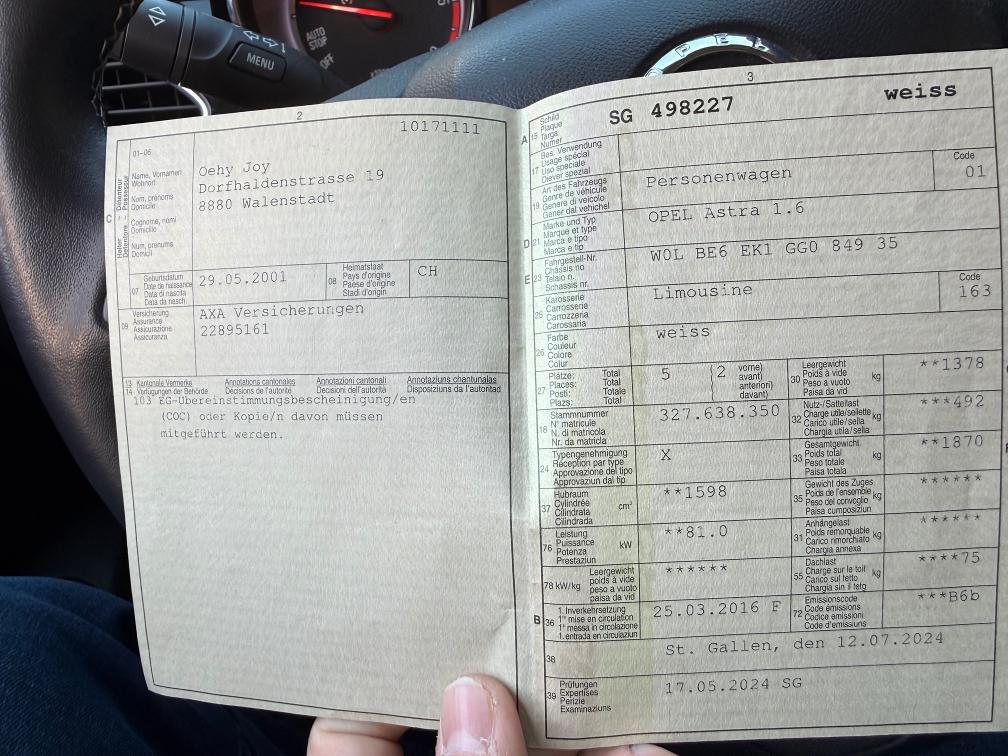 AUTO
STOP
OFF
MENU
O P E L
2
10171111
01-06
C
Halter
Détenteur
Detentore
Possessur
Name, Vornamen
Wohnort
Nom, prénoms
Domicile
Cognome, nomi
Domicilio
Num, prenums
Domicil
Oehy Joy
Dorfhaldenstrasse 19
8880 Walenstadt
07
Geburtsdatum
Date de naissance
Data di nascita
Data da nasch.
29.05.2001
08
Heimatstaat
Pays d'origine
Paese d'origine
Stadi d'origin
CH
09
Versicherung
Assurance
Assicurazione
Assicuranza
AXA Versicherungen
22895161
13
14
Kantonale Vermerke
Verfügungen der Behörde
Annotations cantonales
Décisions de l'autorité
Annotazioni cantonali
Decisioni dell'autorità
Annotaziuns chantunalas
Disposiziuns da l'autoritad
103 EG-Übereinstimmungsbescheinigung/en
(COC) oder Kopie/n davon müssen
mitgeführt werden.
3
A 15
Schild
Plaque
Targa
Numer
SG 498227 weiss
17
Bes. Verwendung
Usage spécial
Uso speciale
Diever spezial
19
Art des Fahrzeugs
Genre de véhicule
Genere di veicolo
Gener dal vehichel
Personenwagen
Code
01
D 21
Marke und Typ
Marque et type
Marca e tipo
Marca e tip
OPEL Astra 1.6
E 23
Fahrgestell-Nr.
Châssis no
Telaio n.
Schassis nr.
W0L BE6 EK1 GG0 849 35
25
Karosserie
Carrosserie
Carrozzeria
Carossaria
Limousine
Code
163
26
Farbe
Couleur
Colore
Colur
weiss
27
Plätze: Total
Places: Total
Posti: Totale
Plazs: Total
5
(2
vorne)
avant)
anteriori)
davant)
30
Leergewicht
Poids à vide
Peso a vuoto
Paisa da vid
kg
**1378
18
Stammnummer
N° matricule
N. di matricola
Nr. da matricla
327.638.350
32
Nutz-/Sattellast
Charge utile/sellette
Carico utile/sella
Chargia utila/sella
kg
***492
24
Typengenehmigung
Réception par type
Approvazione del tipo
Approvaziun dal tip
X
33
Gesamtgewicht
Poids total
Peso totale
Paisa totala
kg
**1870
37
Hubraum
Cylindrée
Cilindrata
Cilindrada
cm³
**1598
35
Gewicht des Zuges
Poids de l'ensemble
Peso del convoglio
Paisa cumposiziun
kg
******
76
Leistung
Puissance
Potenza
Prestaziun
kW
**81.0
31
Anhängelast
Poids remorquable
Carico rimorchiato
Chargia annexa
kg
******
78 kW/kg
Leergewicht
poids à vide
peso a vuoto
paisa da vid
******
55
Dachlast
Charge sur le toit
Carico sul tetto
Chargia sin il tetg
kg
****75
B 36
1. Inverkehrsetzung
1re mise en circulation
1a messa in circolazione
1. entrada en circulaziun
25.03.2016 F
72
Emissionscode
Code émissions
Codice emissioni
Code d'emissiuns
***B6b
38
St. Gallen, den 12.07.2024
39
Prüfungen
Expertises
Perizie
Examinaziuns
17.05.2024 SG